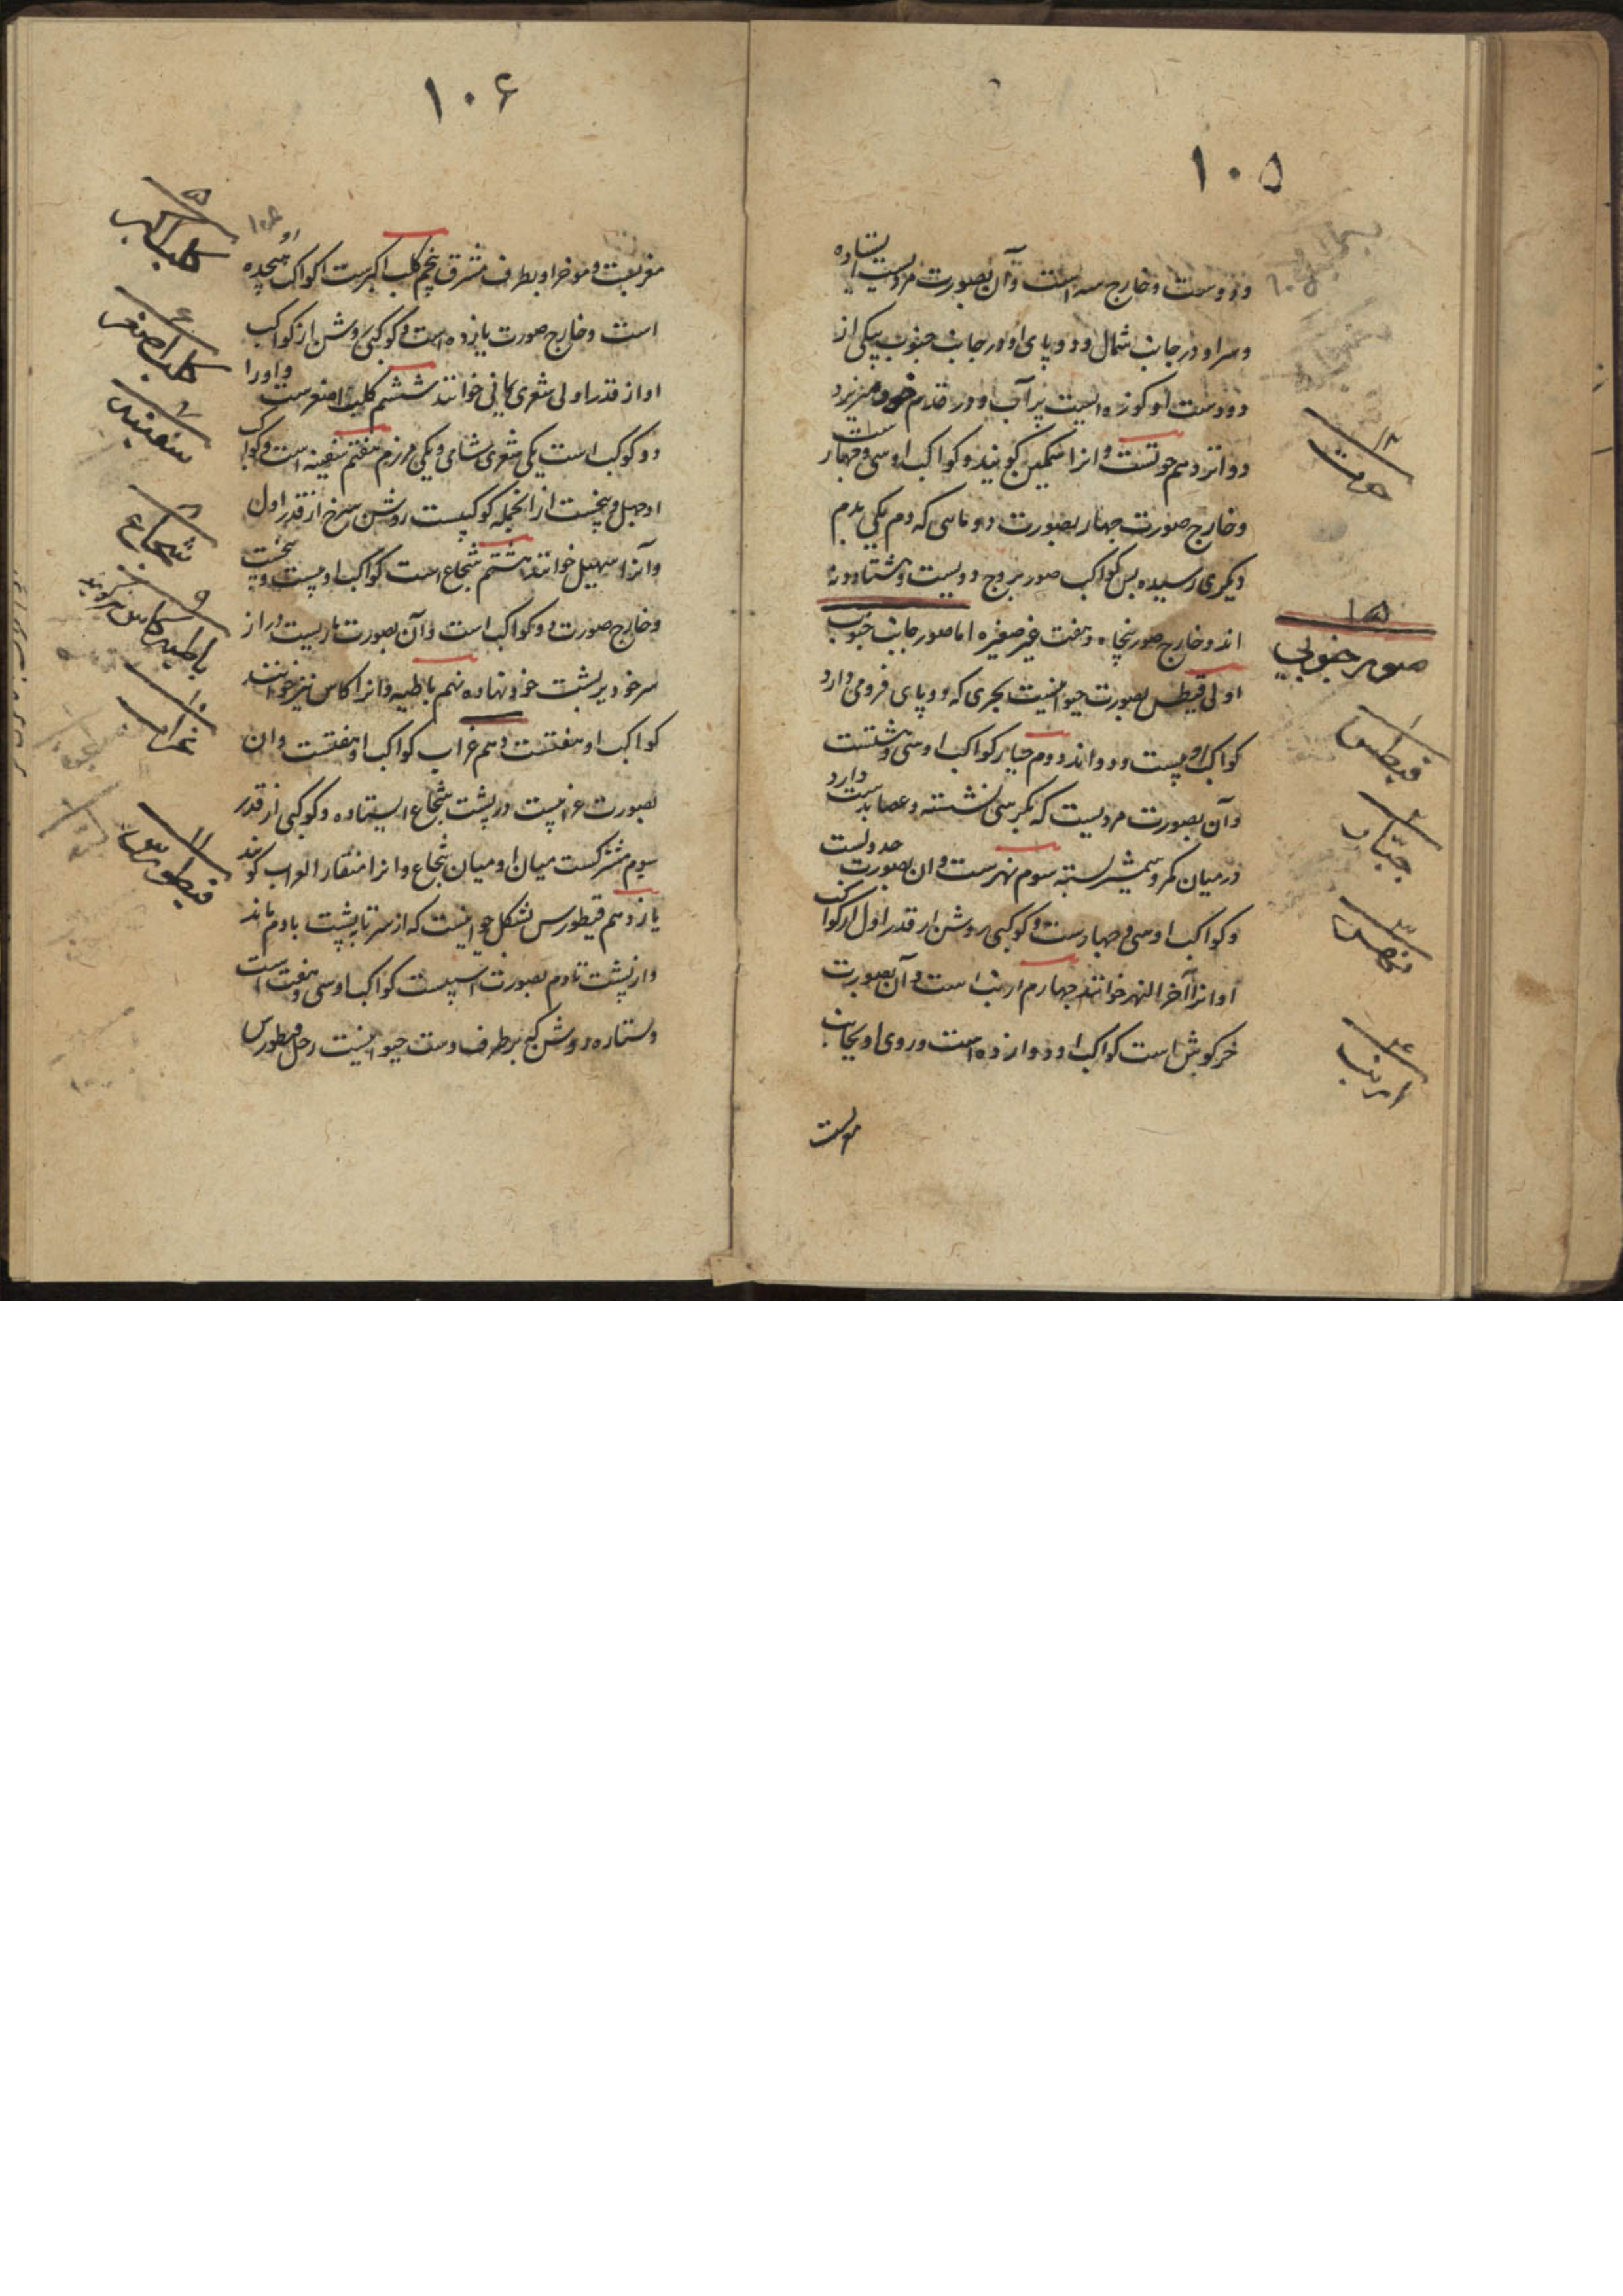 ۱۰۵
ودوست و خارج سه است وآن بصورت مردیست ایستاده
وسر او در جانب شمال و دو پای او در جانب جنوب بیکی از
دو دست او کوزه ایست پر آب او در قدم خود میریزد
دوازدهم حوتست و انرا سمکین کویند و کواکب او سی و چهار است
و خارج صورت چهار بصورت دو ماهی که دم یکی بدم
دیکری رسیده بس کواکب صور بروج دویست و هشتاد و نه
اند و خارج صور پنجاه و هفت غیر صغیره اما صور جانب جنوب
اولی قیطس بصورت حیوانیست بحری که دو پای و دم دارد
کواکب او بیست و دو اند دوم جبار کواکب او سی و هشتست
وآن بصورت مردیست که بکرسی نشسته و عصا بدست دارد
در میان کمر و شمشیر بسته سوم نهرست و ان بصورت جدولست
و کواکب او سی و چهارست و کوکبی روشن از قدر اول از کواکب
او انرا آخر النهر خوانند چهارم ارنب است و آن بصورت
خرکوش است کواکب او دوازده است و روی او بجانب
۱۲
حوت
۱۵
صور جنوبی
۱
قیطس
۲
جبّار
۳
نهر
۴
ارنب
۱۰۶
۱۰۶
مغربست و موخر او بطرف مشرق پنجم کلب اکبرست کواکب او هیجده
است و خارج صورت یازده است و کوکبی روشن از کواکب
او از قدر اولی شعری یمانی خوانند ششم کلب اصغرست و او را
دو کوکب است یکی شعری شامی و یکی مرزم هفتم سفینه است و کواکب
او چهل و پنجست از انجمله کوکبیست روشن سرخ از قدر اول
وآنرا سهیل خوانند هشتم شجاع است کواکب او بیست و پنجست
و خارج صورت دو کواکب است وآن بصورت ماریست دراز
سر خود بر پشت خود نهاده نهم باطیه وانرا کاس نیز خوانند
کواکب او هفتست دهم غراب کواکب او هفتست وان
بصورت غرابیست در پشت شجاع ایستاده و کوکبی از قدر
سوم مشترکست میان او و میان شجاع وانرا منقار الغراب کویند
یازدهم قیطورس بشکل حیوانیست که از سر تا پشت بآدم ماند
و از پشت تا دم بصورت اسپیست کواکب او سی و هفت است
و ستاره روشن که بر طرف دست حیوانیست رجل قیطورس
۵
کلب اکبر
۶
کلب اصغر
۷
سفینه
۸
شجاع
۹
باطیه کاس نیز گویند
۱۰
غراب
۱۱
قیطورس